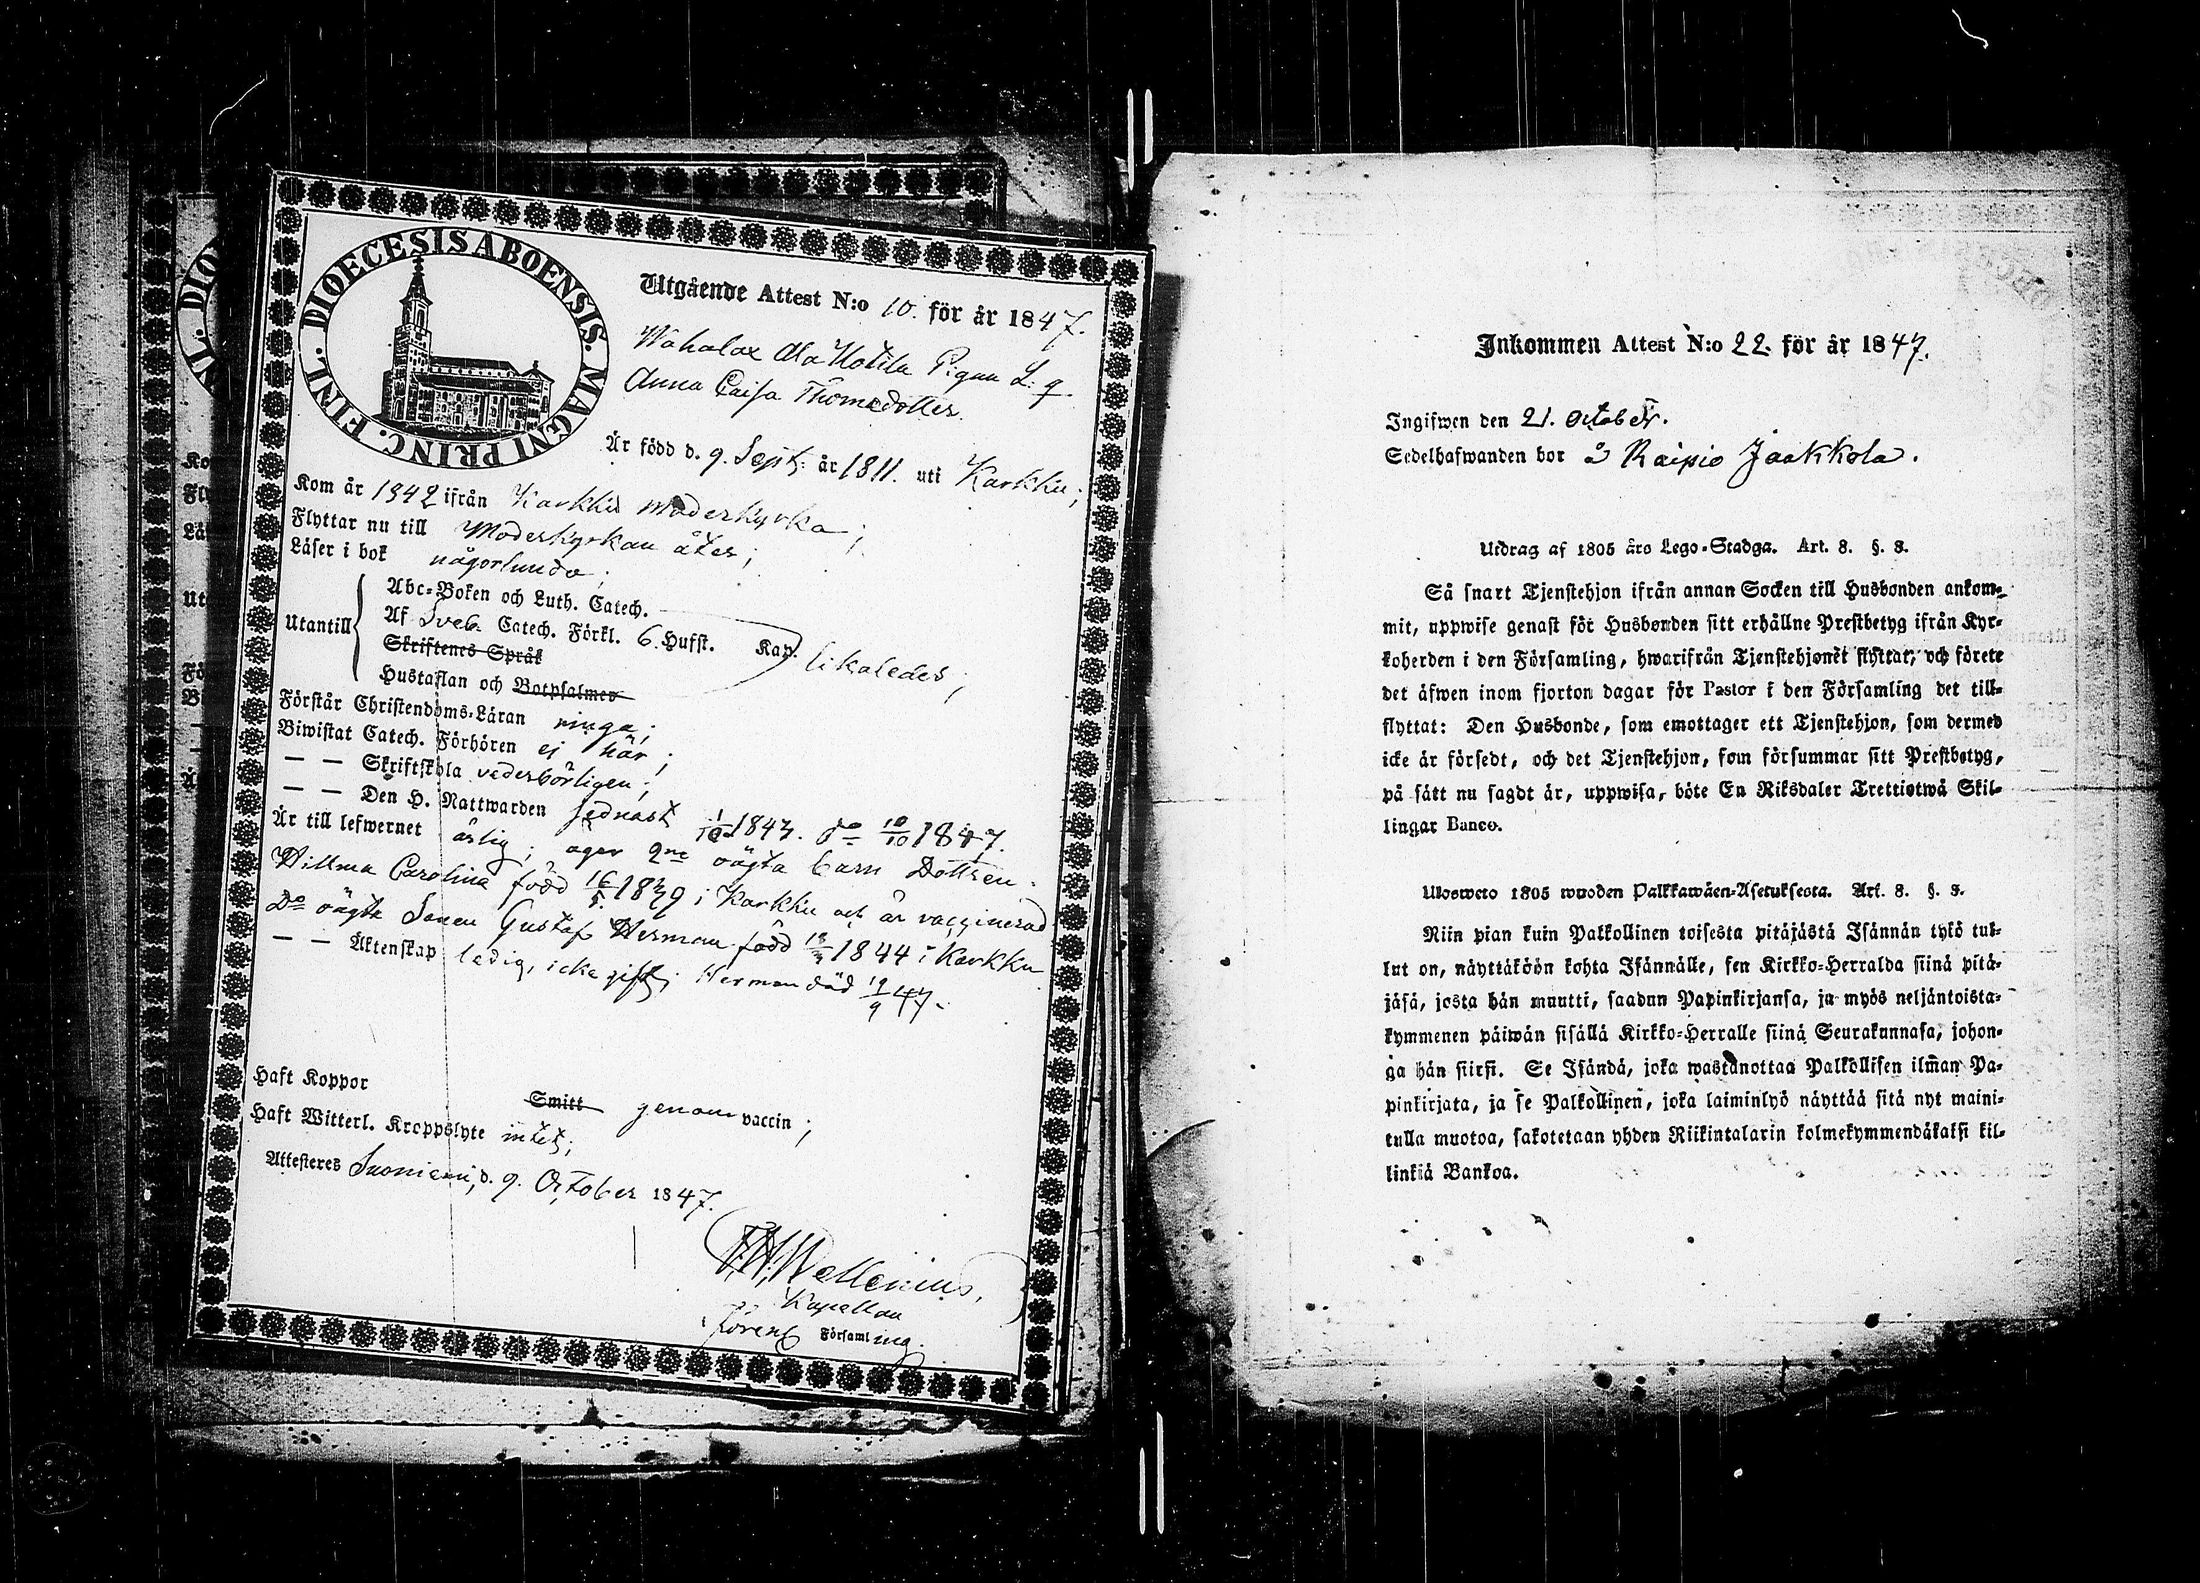 DIOECESIS ABOENSIS. MAGNI PRINC. FINL.
Utgående Attest N:o 10. för år 1847.
Wahalax Ala Kotila Pigan L: q
Anna Caisa Thomædotter.
Är född d. 9. Sept: år 1811. uti Karkku;
Kom år 1842 ifrån Karkku moderkyrka;
Flyttar nu till Moderkyrkan åter;
Läser i bok någorlunda;
Utantill
Abc-Boken och Luth. Catech.
Af Sveb. Catech. Förkl. 6. Hufst. Kap. likaledes;
Skriftenes Språk
Hustaflan och Botpsalmer
Förstår Christendoms-Läran ringa;
Biwistat Catech. Förhören ej här;
— — Skriftskola vederbörligen;
— — Den H. Nattwarden sednast 1/10 1843. Do 10/10 1847.
Är till lefwernet ärlig; äger 2ne oägta barn Dottren
Willma Carolina född 16/5 1839 i Karkku och är vaccinerad
Do oägta Sonen Gustaf Herman född 1844 i Karkku
— — Äktenskap ledig, icke gift; Herman död 19/9 47.
Haft Koppor
Smitt genom vaccin;
Haft Witterl. Kroppslyte intet;
Attesteres Suoniemi, d. 9. October 1847.
Wellenius,
Kapellan
förend Församling
Inkommen Attest N:o 22. för år 1847.
Ingifwen den 21. October.
Sedelhafwanden bor å Raipio Jaakkola.
Utdrag af 1805 års Lego-Stadga. Art. 8. §. 3.
Så snart Tjenstehjon ifrån annan Socken till Husbonden ankom-
mit, uppwise genast för Husbonden sitt erhållne Prestbetyg ifrån Kyr-
koherden i den Församling, hwarifrån Tjenstehjonet flyttat, och förete
det äfwen inom fjorton dagar för Pastor i den Församling det till-
flyttat: Den Husbonde, som emottager ett Tjenstehjon, som dermed
icke är försedt, och det Tjenstehjon, som försummar sitt Prestbetyg,
på sätt nu sagdt är, uppwisa, böte En Riksdaler Trettiotwå Skil-
lingar Banco.
Ulosweto 1805 wuoden Palkkawäen-Asetuksesta. Art. 8. §. 3.
Niin pian kuin Palkollinen toisesta pitäjästä Isännän tykö tul-
lut on, näyttäköön kohta Isännälle, sen Kirkko-Herralda siinä pitä-
jäsä, josta hän muutti, saadun Papinkirjansa, ja myös neljäntoista-
kymmenen päiwän sisällä Kirkko-Herralle siinä Seurakunnasa, johon-
ga hän siirsi. Se Isändä, joka wastanottaa Palkollisen ilman Pa-
pinkirjata, ja se Palkollinen, joka laiminlyö näyttää sitä nyt maini-
tulla muotoa, sakotetaan yhden Riikintalarin kolmekymmendäkaksi kil-
linkiä Bankoa.